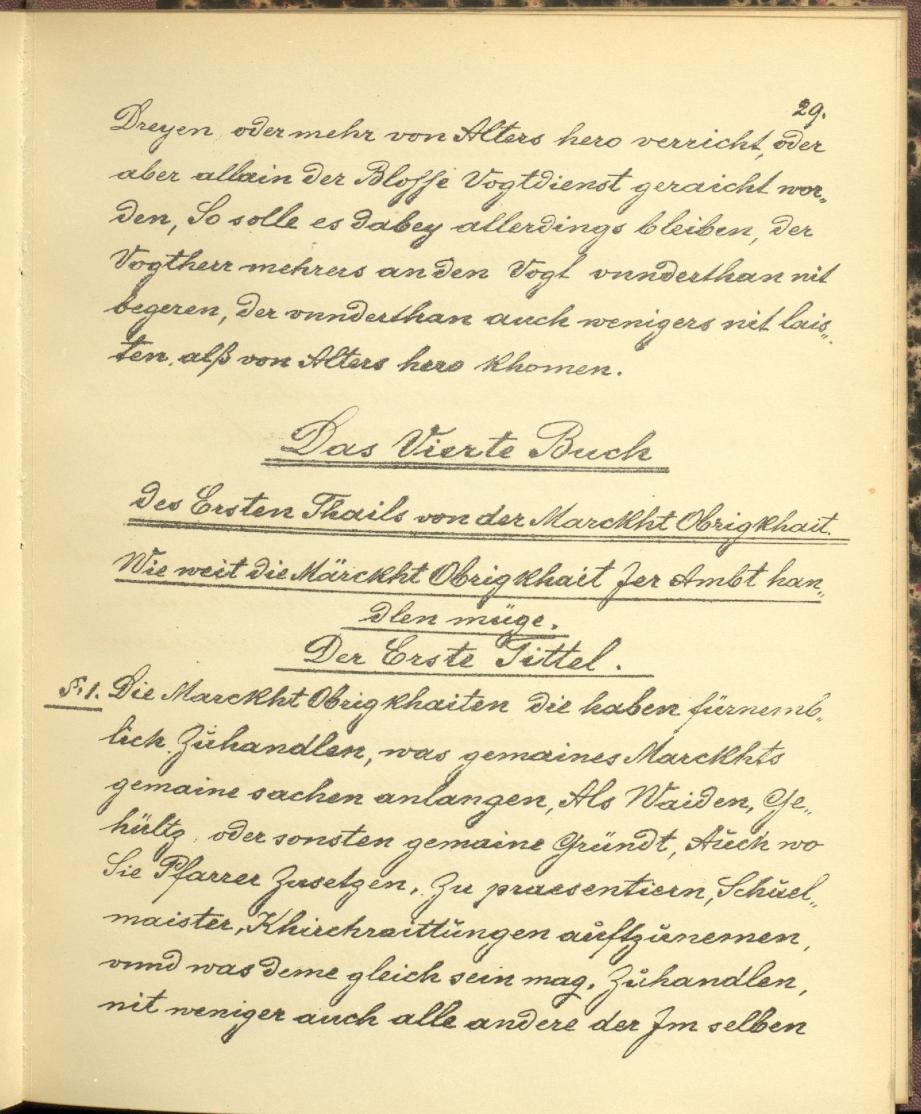 29.
Dreyen oder mehr von Alters hero verricht, oder
aber allain der Blosse Vogtdienst geraicht wor„
den, So solle es dabey allerdings bleiben, der
Vogtherr mehrers an den Vogt vnnderthan nit
begeren, der vnnderthan auch wenigers nit lais„
ten, alß von Alters hero khomen.
Das Vierte Buch
des Ersten Thails von der Marckht Obrigkhait.
Wie weit die Märckht Obrigkhait Jer Ambt han„
dlen müge.
Der Erste Tittel.
§. 1. Die Marckht Obrigkhaiten die haben fürnemb„
lich Zŭhandlen, was gemaines Marckhts
gemaine sachen anlangen, Als Waiden, Ge„
hültz, oder sonsten gemaine Gründt, Aŭch wo
Sie Pfarrer Zusetzen, Zu praesentiern, Schŭel„
maister, Khirchraittŭngen aŭffzŭnemen,
vnnd was deme gleich sein mag, Zŭhandlen,
nit weniger auch alle andere der Jm selben